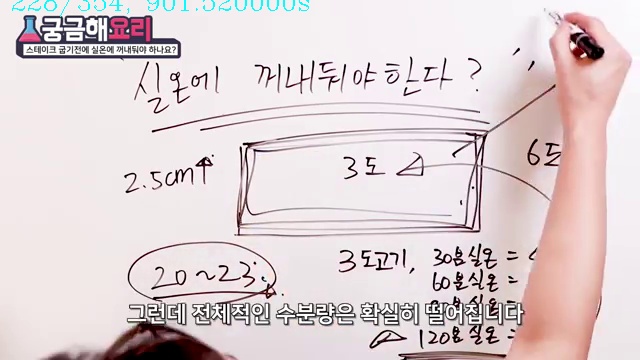 228/354, 901.520000s
궁금해요리
스테이크 굽기전에 실온에 꺼내둬야 하나요?
실온에 꺼내둬야한다?
2.5cm↑
3도
6도
20~23
3도고기, 30분실온 =
60분실온 =
120분실온 =
그런데 전체적인 수분량은 확실히 떨어집니다